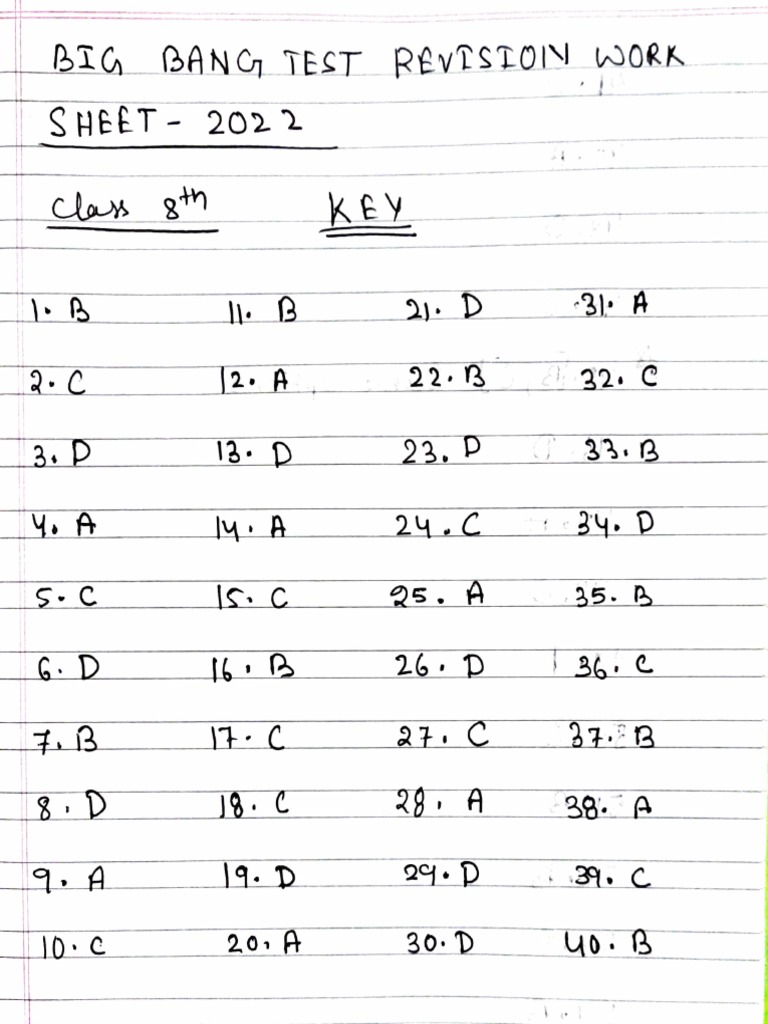 BIG BANG TEST REVISION WORK
SHEET - 2022
Class 8th KEY
1. B 11. B 21. D 31. A
2. C 12. A 22. B 32. C
3. D 13. D 23. D 33. B
4. A 14. A 24. C 34. D
5. C 15. C 25. A 35. B
6. D 16. B 26. D 36. C
7. B 17. C 27. C 37. B
8. D 18. C 28. A 38. A
9. A 19. D 29. D 39. C
10. C 20. A 30. D 40. B